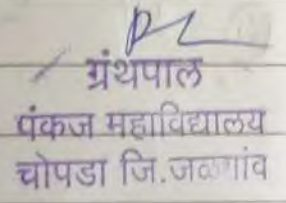 ग्रंथपाल
पंकज महाविद्यालय
चोपडा जि.जळगांव